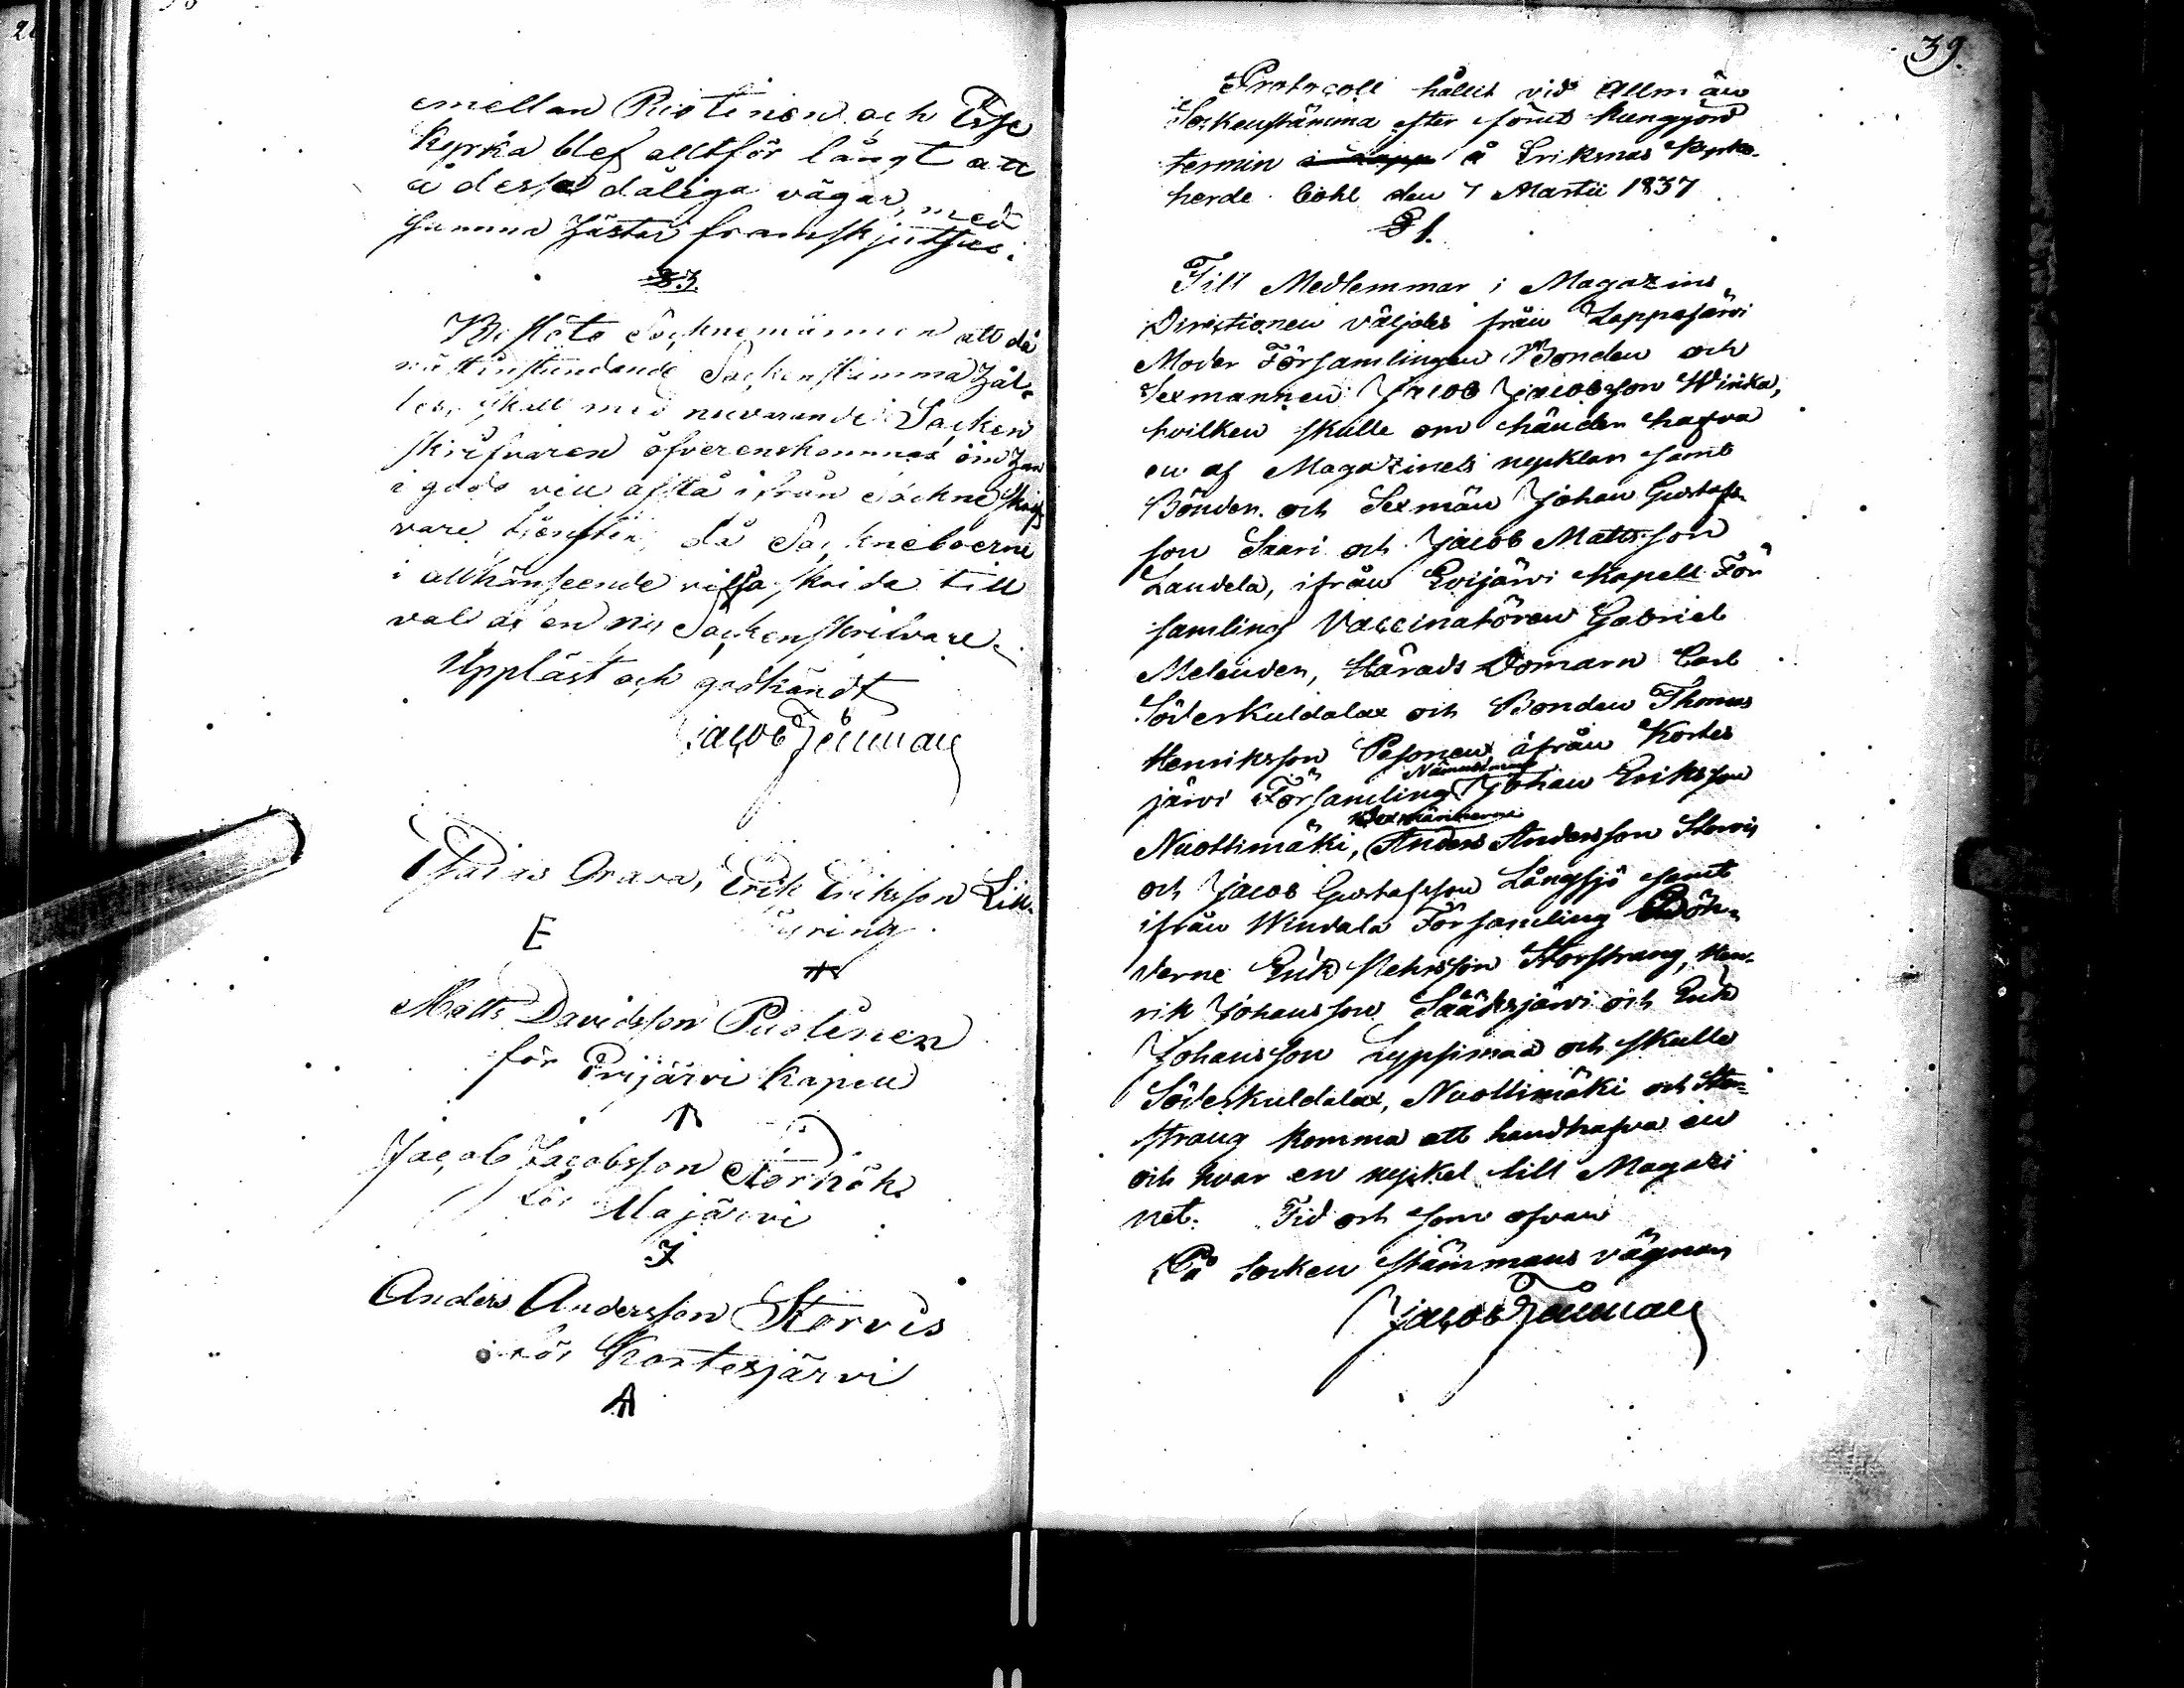 emellan Piotinen och Esse
Kyrka blef alltför långt att
å dessa dåliga vägar, med
samma hästar framskjutsas.
§ 3.
Beslöto Socknemännen att då
nästinstundande Sockenstämma hål-
les, skall med nuvarande Socken
skrifvaren öfverenskommas om han
i godo vill afstå ifrån Sockne skrif
vare tjensten, då Sockneboerne
i allt hänseende vilja skrida till
val af en ny Sockenskrifvare.
Uppläst och godkändt
Jacob Fellman
Grava, Erik Eriksson Lill
E
Matts Davidsson Puolinen
för Evijärvi Kapell
Jacob Jacobsson Storbök
för
Anders Andersson Storvis
för Kortesjärvi
A
39.
Protocoll hållit vid Allmän
Sockenstämma efter förut kungjord
termin å Eriksnäs Kyrko-
herde Bohl den 7 Martii 1837
§ 1.
Till Medlemmar i Magazins
Directionen väljdes från Lappajärvi
Moder Församlingen Bonden och
Sexmannen Jacob Jacobsson Wirika,
hvilken skulle om händer hafva
en af Magazinets nycklar samt
Bönder och Sexmän Johan Gustafs-
son Saari och Jacob Mattsson
Landela, ifrån Evijärvi Kapell För
samling Vaccinatören Gabriel
Melender, Härads Domarn Carl
Söderkuldalax och Bonden Thomas
Henriksson Pesonen ifrån Kortes
Nämndeman
järvi Församling Johan Eriksson
Sexmännerne
Nuottimäki, Anders Andersson Storvis
och Jacob Gustafsson Långsjö samt
ifrån Windala Församling Bön-
derne Erik Mattsson Storstrang, Hen-
rik Johansson Sääksjärvi och Erik
Johansson Lypsimaa och skulle
Söderkuldalax, Nuottimäki och Stor-
strang komma att handhafva en
och hvar en nyckel till Magazi
net. Tid och som ofvan
På Socken stämmans vägnar
Jacob Fellman